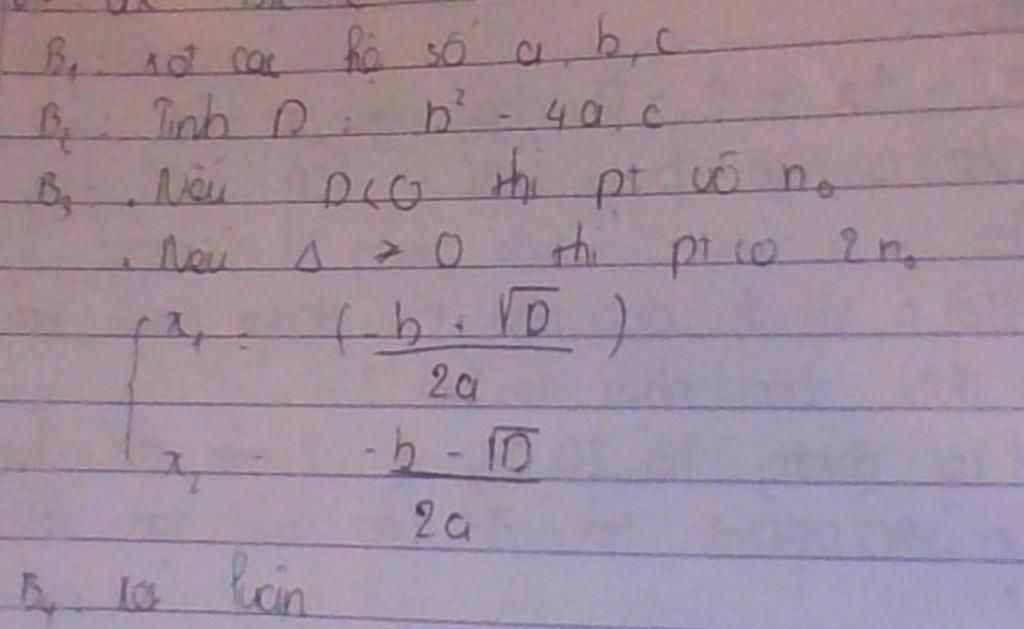 B₁. xđt các hệ số a, b, c
B₂. Tính D = b² - 4a.c
B₃. Nếu D<0 thì pt vô n₀
. Nếu Δ > 0 thì pt có 2 n₀
x₁ = ( -b + √D / 2a )
x₂ = -b - √D / 2a
B₄. luận